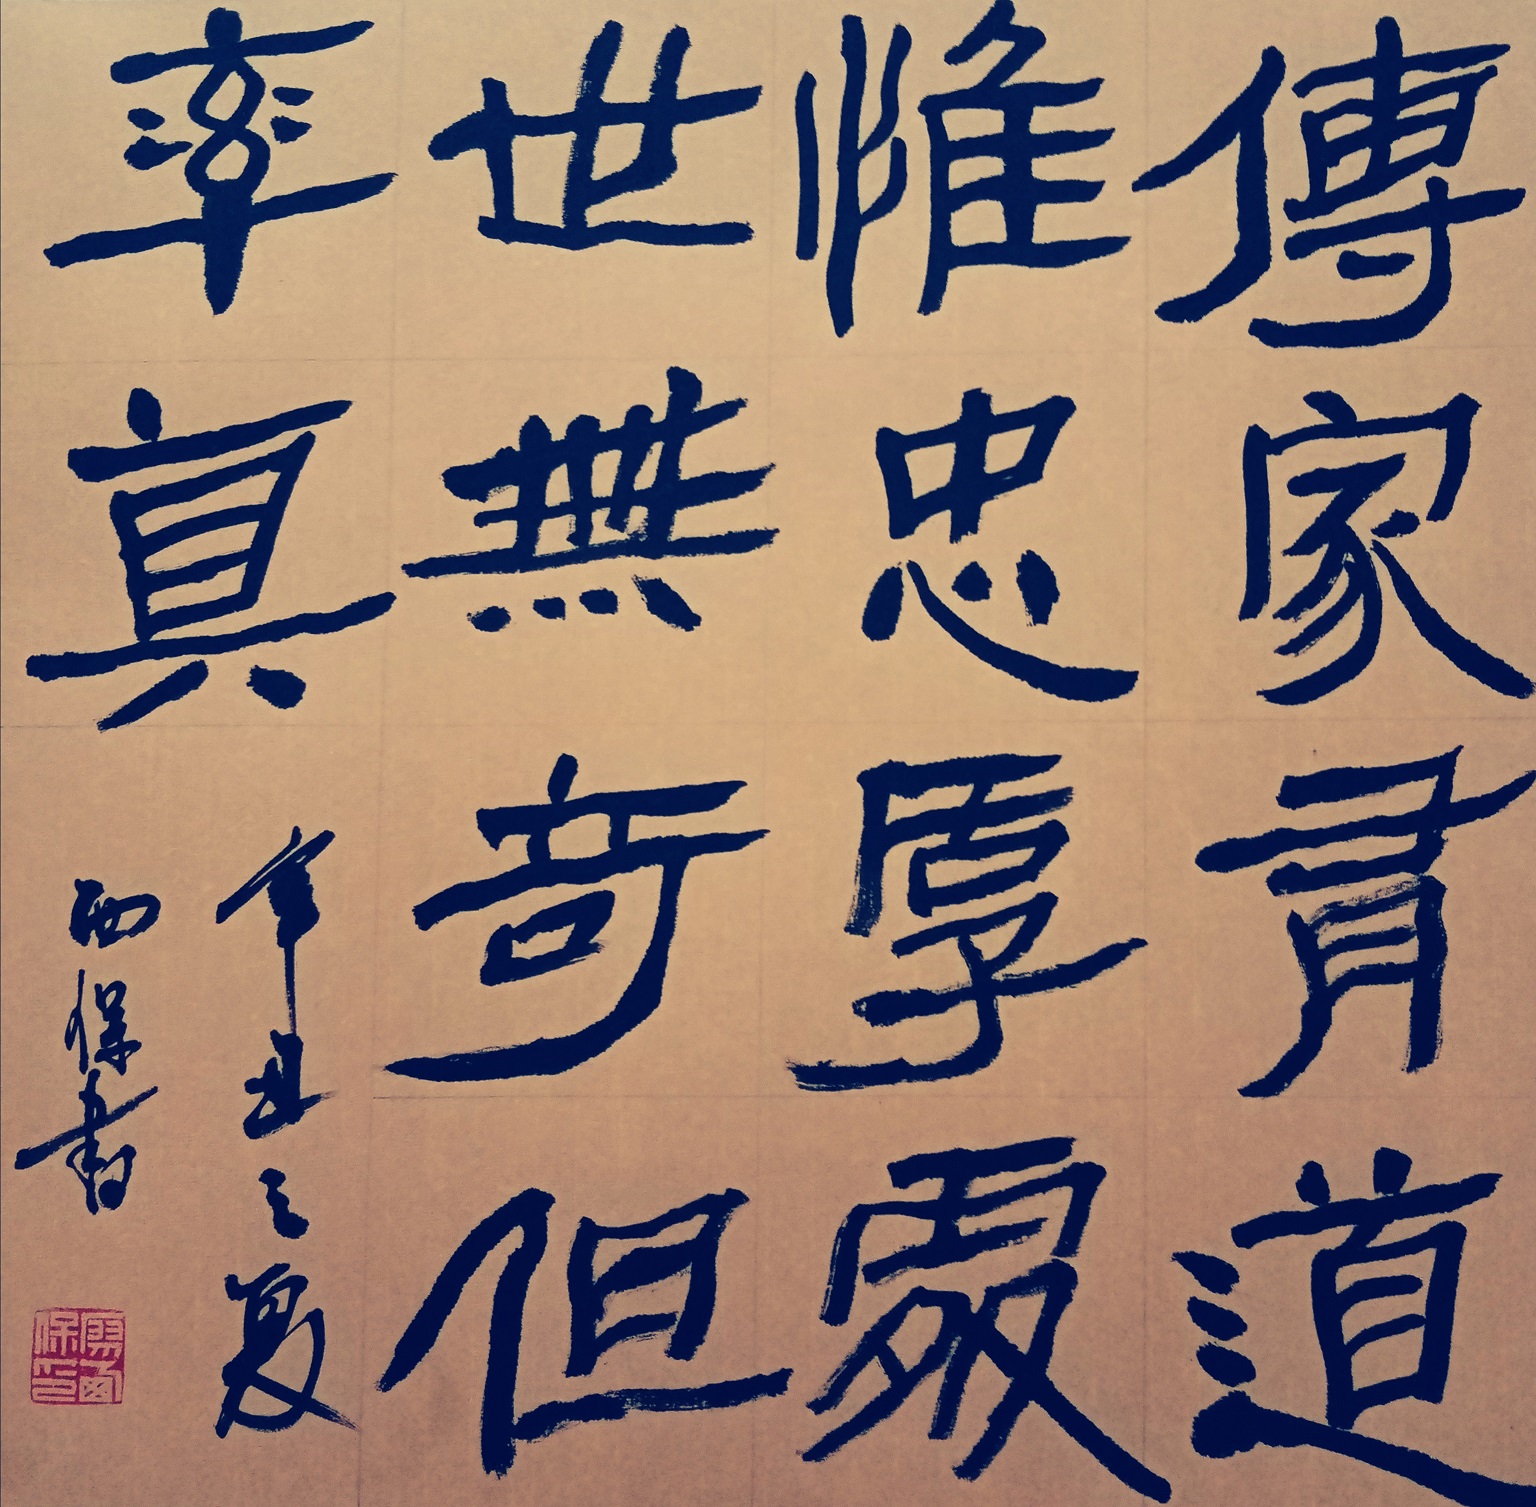 傳家有道
惟忠厚處
世無奇但
率真
辛丑之夏
西保書